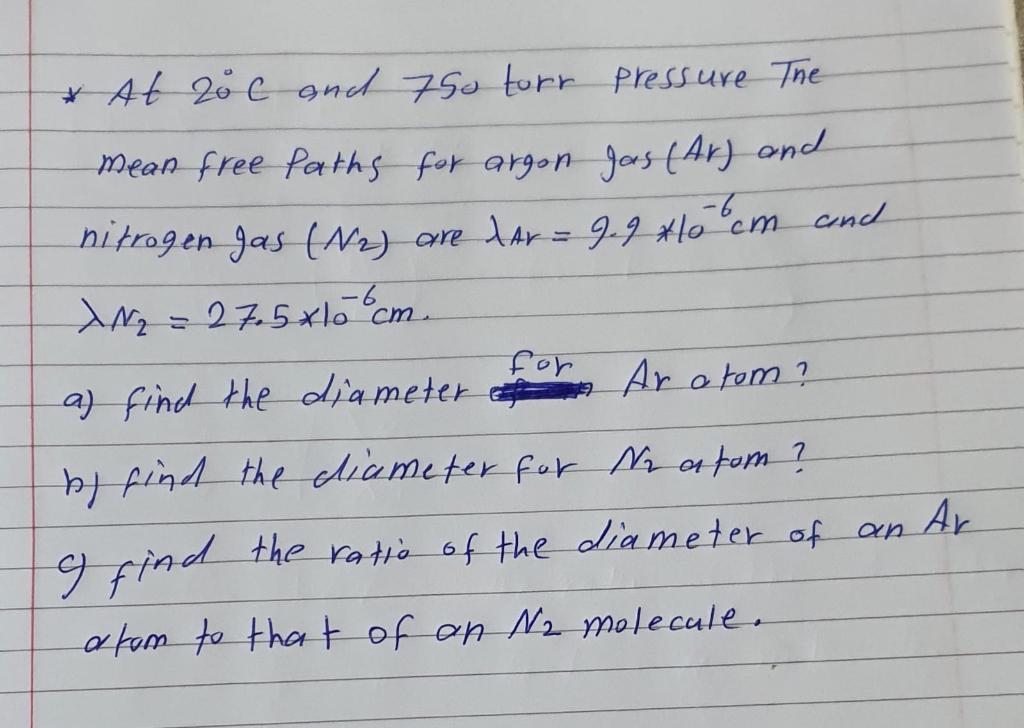 * At 20°C and 750 torr pressure The
mean free Paths for argon gas (Ar) and
nitrogen gas (N₂) are λAr = 9.9 *10⁻⁶ cm and
λN₂ = 27.5×10⁻⁶ cm.
a) find the diameter for Ar atom?
b) find the diameter for N₂ atom?
c) find the ratio of the diameter of an Ar
atom to that of an N₂ molecule.